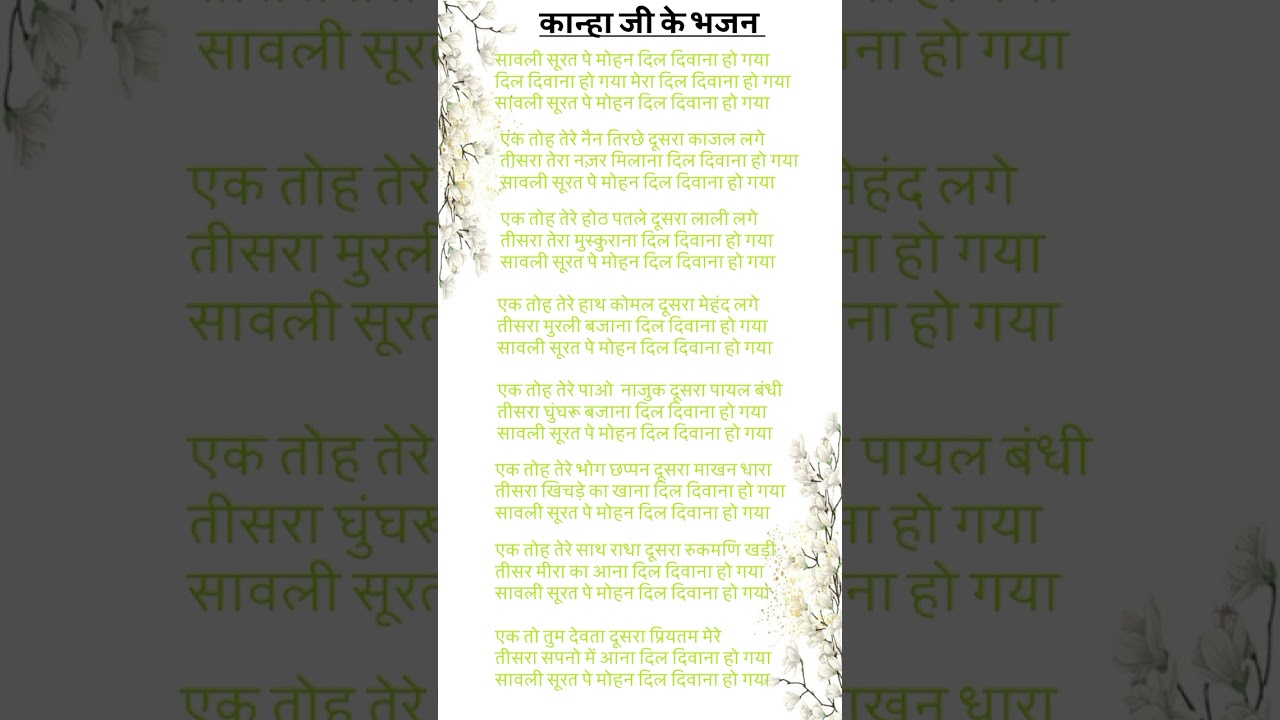 कान्हा जी के भजन
सावली सूरत पे मोहन दिल दिवाना हो गया
दिल दिवाना हो गया मेरा दिल दिवाना हो गया
सावली सूरत पे मोहन दिल दिवाना हो गया
एक तोह तेरे नैन तिरछे दूसरा काजल लगे
तीसरा तेरा नज़र मिलाना दिल दिवाना हो गया
सावली सूरत पे मोहन दिल दिवाना हो गया
एक तोह तेरे होठ पतले दूसरा लाली लगे
तीसरा तेरा मुस्कुराना दिल दिवाना हो गया
सावली सूरत पे मोहन दिल दिवाना हो गया
एक तोह तेरे हाथ कोमल दूसरा मेहंद लगे
तीसरा मुरली बजाना दिल दिवाना हो गया
सावली सूरत पे मोहन दिल दिवाना हो गया
एक तोह तेरे पाओ नाजुक दूसरा पायल बंधी
तीसरा घुंघरू बजाना दिल दिवाना हो गया
सावली सूरत पे मोहन दिल दिवाना हो गया
एक तोह तेरे भोग छप्पन दूसरा माखन धारा
तीसरा खिचड़े का खाना दिल दिवाना हो गया
सावली सूरत पे मोहन दिल दिवाना हो गया
एक तोह तेरे साथ राधा दूसरा रुकमणि खड़ी
तीसर मीरा का आना दिल दिवाना हो गया
सावली सूरत पे मोहन दिल दिवाना हो गया
एक तो तुम देवता दूसरा प्रियतम मेरे
तीसरा सपनो में आना दिल दिवाना हो गया
सावली सूरत पे मोहन दिल दिवाना हो गया